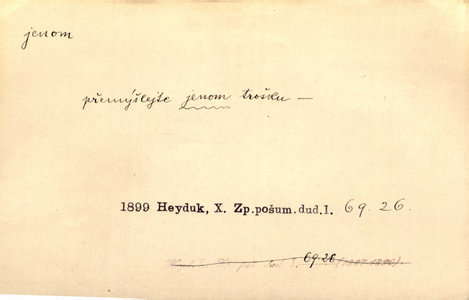 jenom
přemýšlejte jenom trošku —
1899 Heyduk, X. Zp.pošum.dud.I. 69. 26.
69 26 (1897-1899).